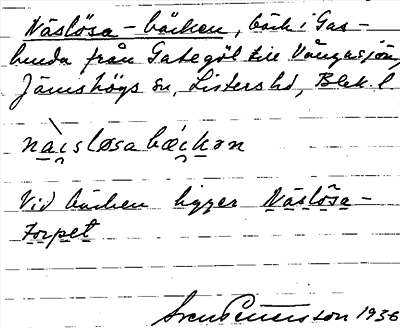 Näslösa-bäcken, bäck i Gas-
hunda från Gategöl till Vångasjön,
Jämshögs sn, Listers hd, Blek. l.
nàisløsabæckən
Vid bäcken ligger Näslösa-
torpet
Sven Petersson 1936